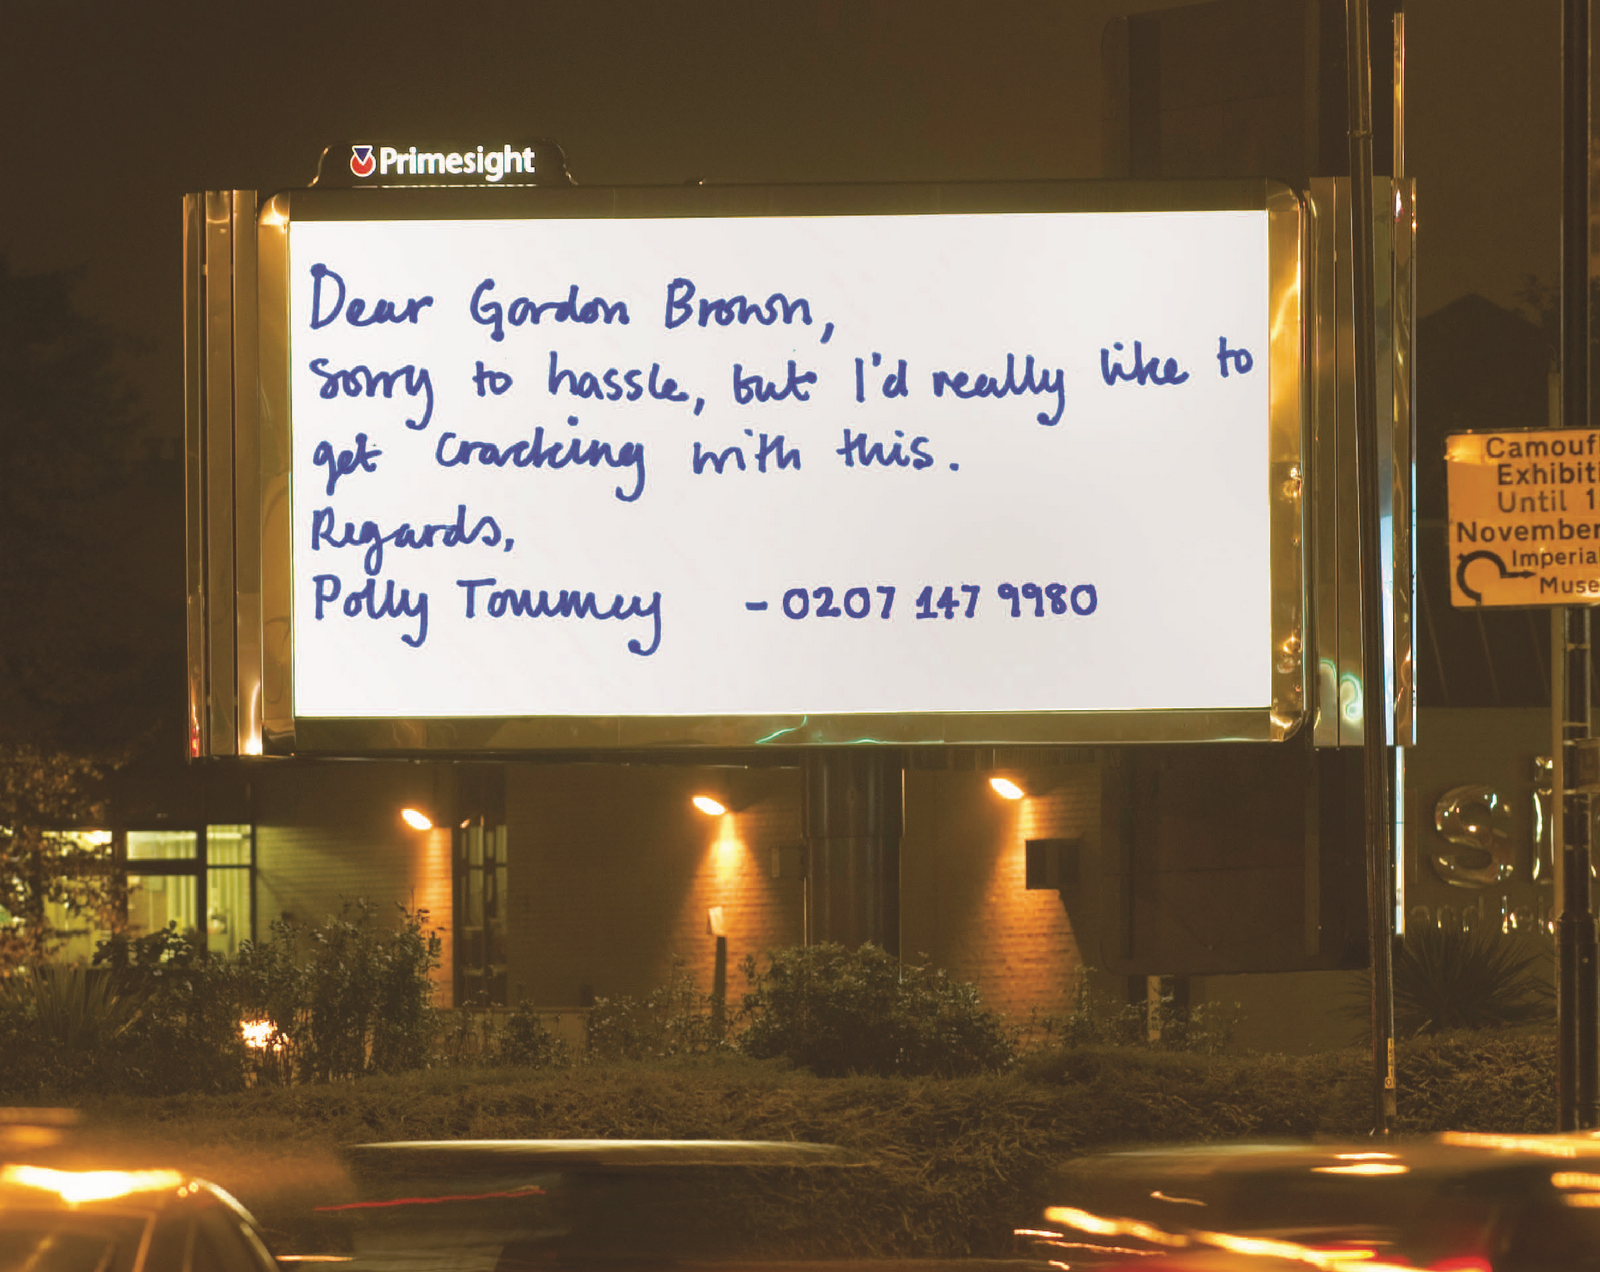 Primesight
Dear Gordon Brown,
Sorry to hassle, but I'd really like to
get cracking with this.
Regards,
Polly Tommey - 0207 147 9980
Camouf
Exhibiti
Until 1
November
Imperia
Muse
si